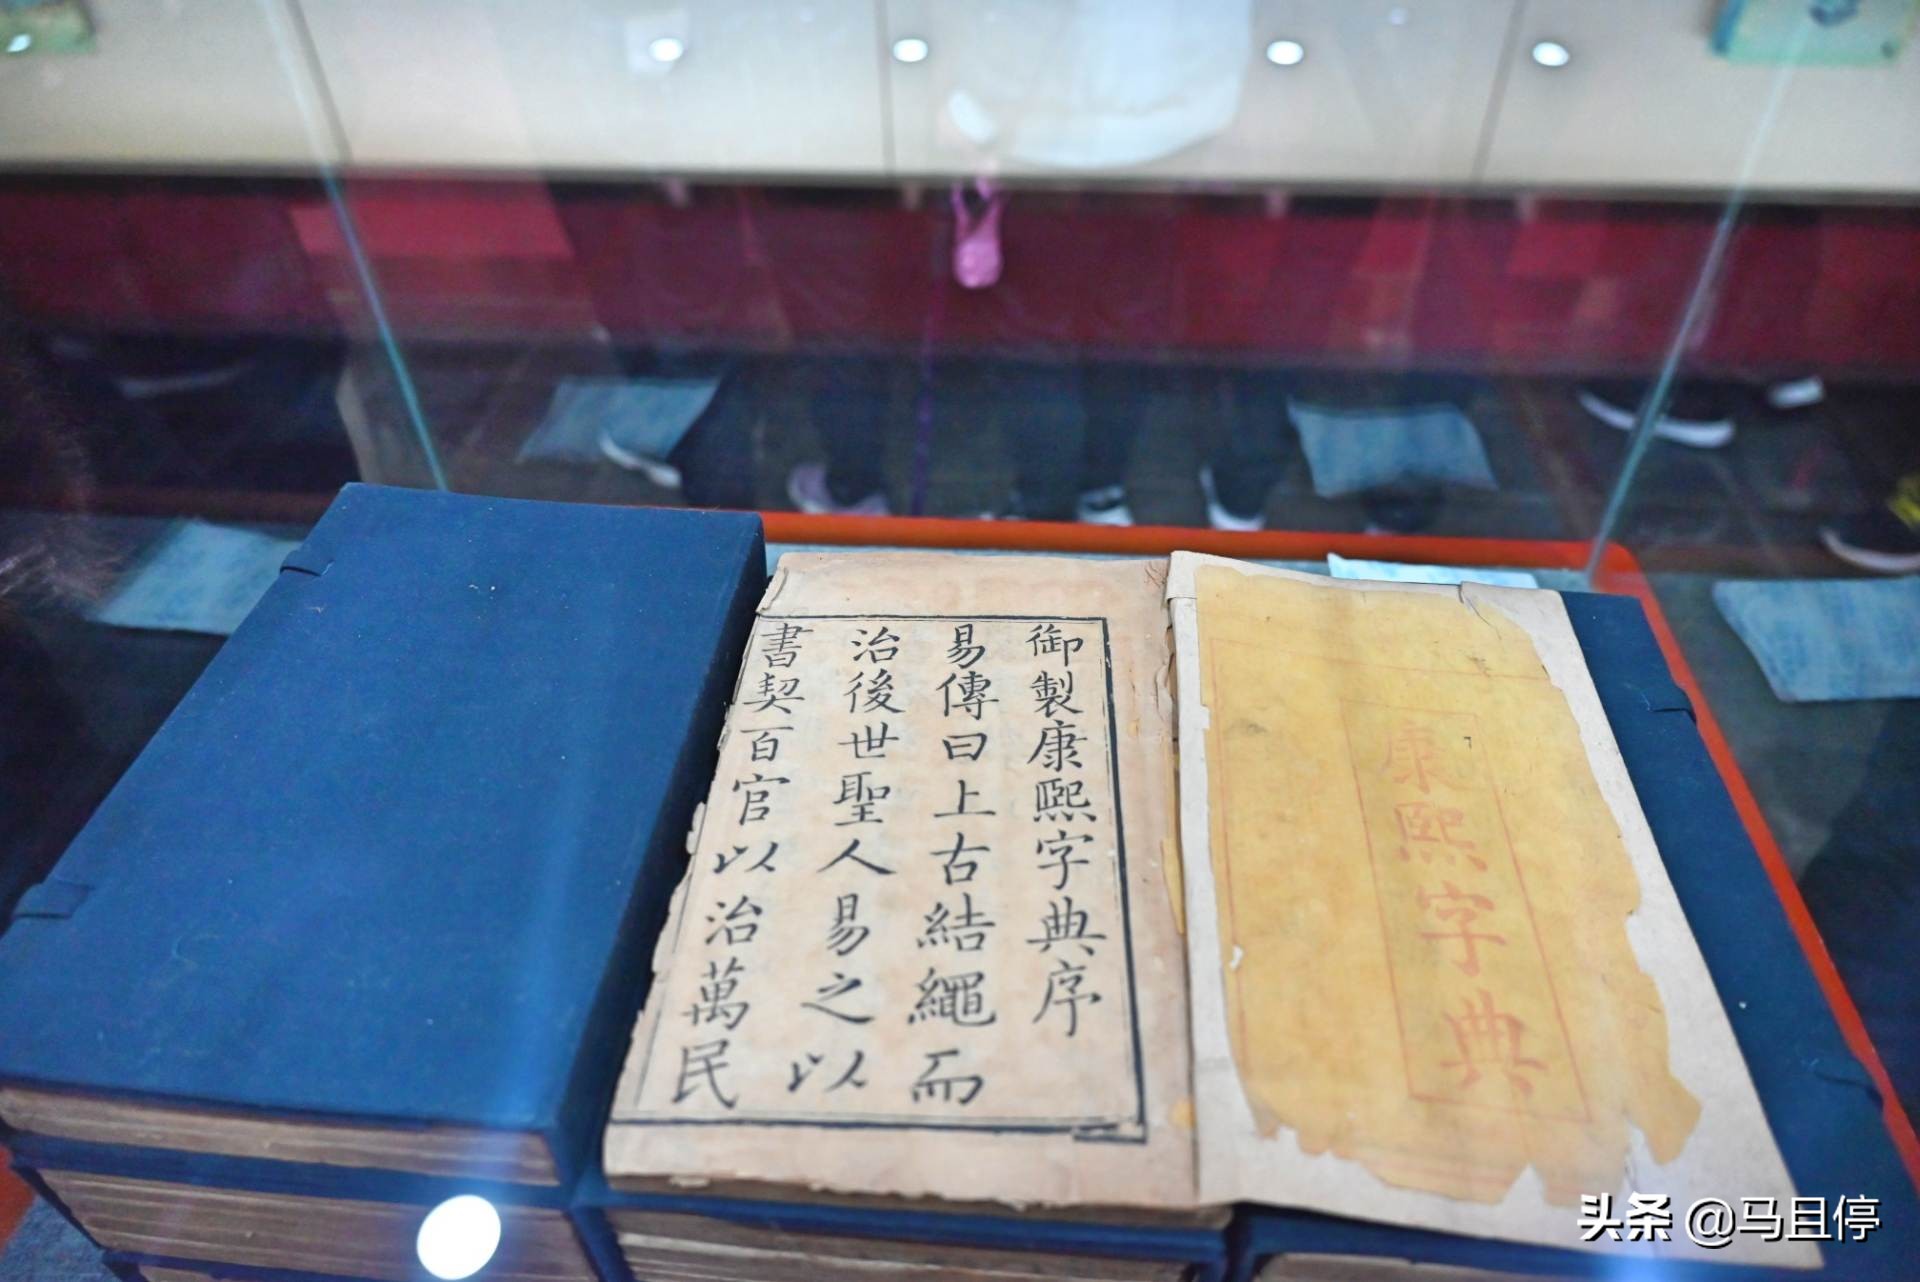 康熙字典
御製康熙字典序
易傳曰上古結繩而
治後世聖人易之以
書契百官以治萬民
头条 @马且停